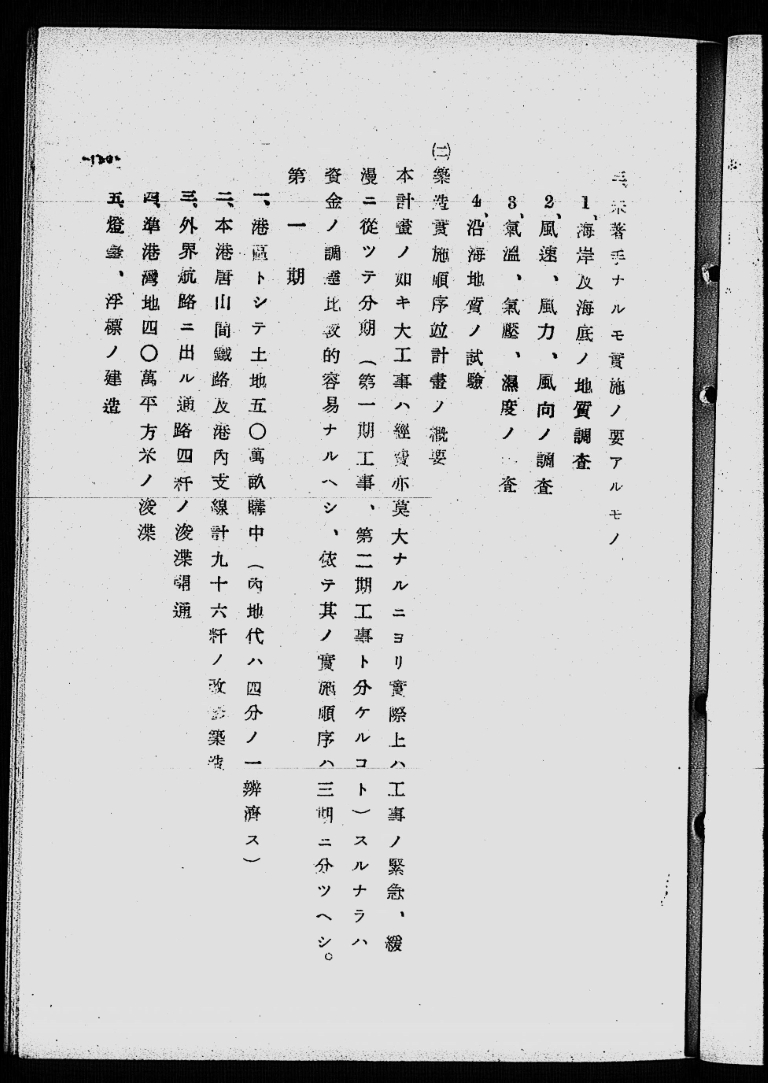 三、未著手ナルモ實施ノ要アルモノ
1、海岸及海底ノ地質調査
2、風速、風力、風向ノ調査
3、氣溫、氣壓、濕度ノ査
4、沿海地質ノ試驗
㈡築造實施順序竝計畫ノ概要
本計畫ノ如キ大工事ハ經費亦莫大ナルニヨリ實際上ハ工事ノ緊急、緩
漫ニ從ツテ分期（第一期工事、第二期工事ト分ケルコト）スルナラハ
資金ノ調達比較的容易ナルヘシ、依テ其ノ實施順序ハ三期ニ分ツヘシ。
第一期
一、港區トシテ土地五〇萬畝購中（內地代ハ四分ノ一辨濟ス）
二、本港唐山間鐵路及港內支線計九十六粁ノ改築造
三、外界航路ニ出ル通路四粁ノ浚渫開通
四、準港灣地四〇萬平方米ノ浚渫
五、燈臺、浮標ノ建造
-120-